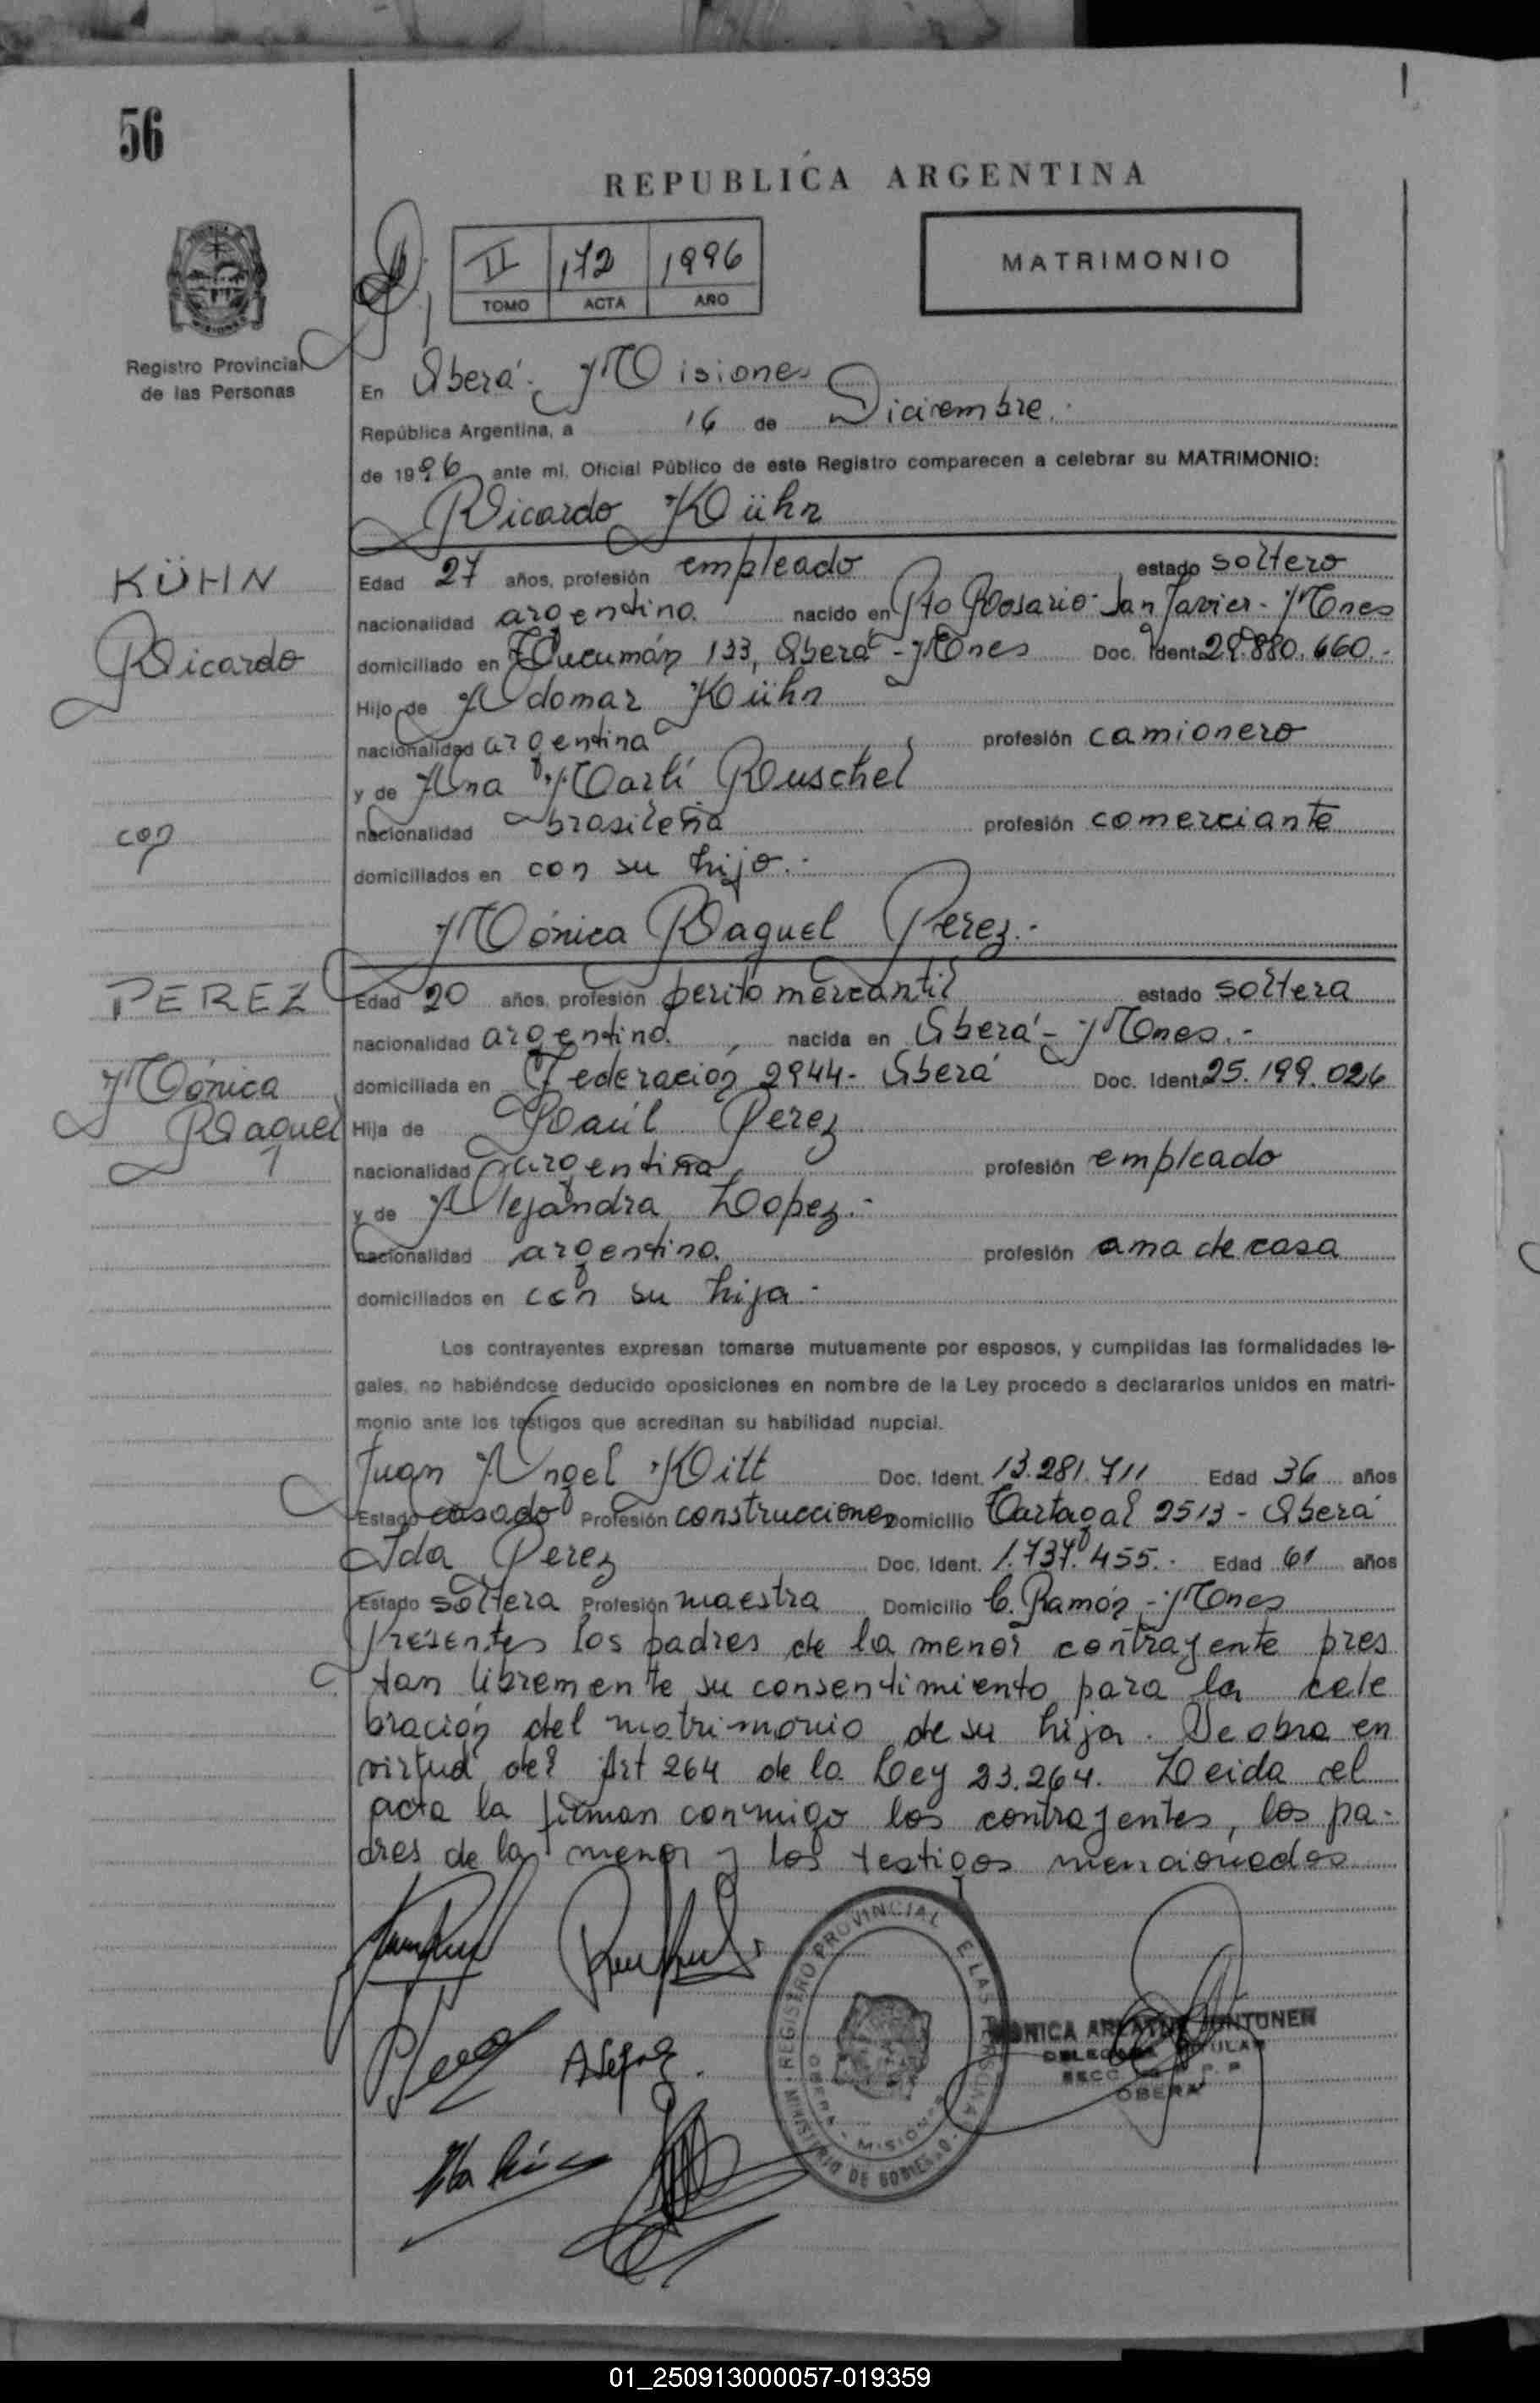 56
REPUBLICA ARGENTINA
II 172 1996
TOMO ACTA AÑO
MATRIMONIO
Registro Provincial
de las Personas
En Oberá - Misiones
República Argentina, a 16 de Diciembre.
de 1996 ante mi, Oficial Público de este Registro comparecen a celebrar su MATRIMONIO:
Ricardo Kühn
KÜHN
Ricardo
Edad 27 años, profesión empleado estado soltero
nacionalidad argentina nacido en Pto Rosario - San Javier - Mones
domiciliado en Tucumán 133, Oberá - Mones Doc. Ident. 880.660.-
Hijo de Adomar Kühn
nacionalidad argentina profesión camionero
y de Ana Marlí Ruschel
nacionalidad brasileña profesión comerciante
con
domiciliados en con su hijo.-
Mónica Raquel Perez.-
PEREZ
Mónica
Raquel
Edad 20 años, profesión perito mercantil estado soltera
nacionalidad argentina nacida en Oberá - Mones.-
domiciliada en Federación 2944- Oberá Doc. Ident. 25.199.026
Hija de Raúl Perez
nacionalidad argentina profesión empleado
y de Alejandra Lopez.-
nacionalidad argentina profesión ama de casa
domiciliados en con su hija-
Los contrayentes expresan tomarse mutuamente por esposos, y cumplidas las formalidades le-
gales, no habiéndose deducido oposiciones en nombre de la Ley procedo a declararlos unidos en matri-
monio ante los testigos que acreditan su habilidad nupcial.
Juan Angel Kitt Doc. Ident. 13.281.711 Edad 36 años
Estado casado Profesión construcciones Domicilio Tartagal 2513 - Oberá
Ida Perez Doc. Ident. 1.737.455.- Edad 61 años
Estado soltera Profesión maestra Domicilio C. Ramón - Mones
Presentes los padres de la menor contrayente pres
tan libremente su consentimiento para la cele
bración del matrimonio de su hija. Se obra en
virtud del Art 264 de la Ley 23.264. Leida el
acta la firman conmigo los contrayentes, los pa-
dres de la menor y los testigos mencionados
REGISTRO PROVINCIAL DE LAS PERSONAS
MINISTERIO DE GOBIERNO
OBERA - MISIONES
MONICA ANTONEN
DELEGADA TITULAR
SECC. R. P. P.
OBERA
01_250913000057-019359